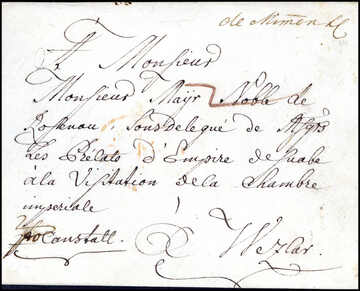 de Mimen
A Monsieur
Monsieur Mayr Noble de
Rosenau, Sousdelegué de Msgrs
Les Prelats d'Empire de Suabe
à la Visitation de la Chambre
imperiale
à Wezlar.
Canstatt.